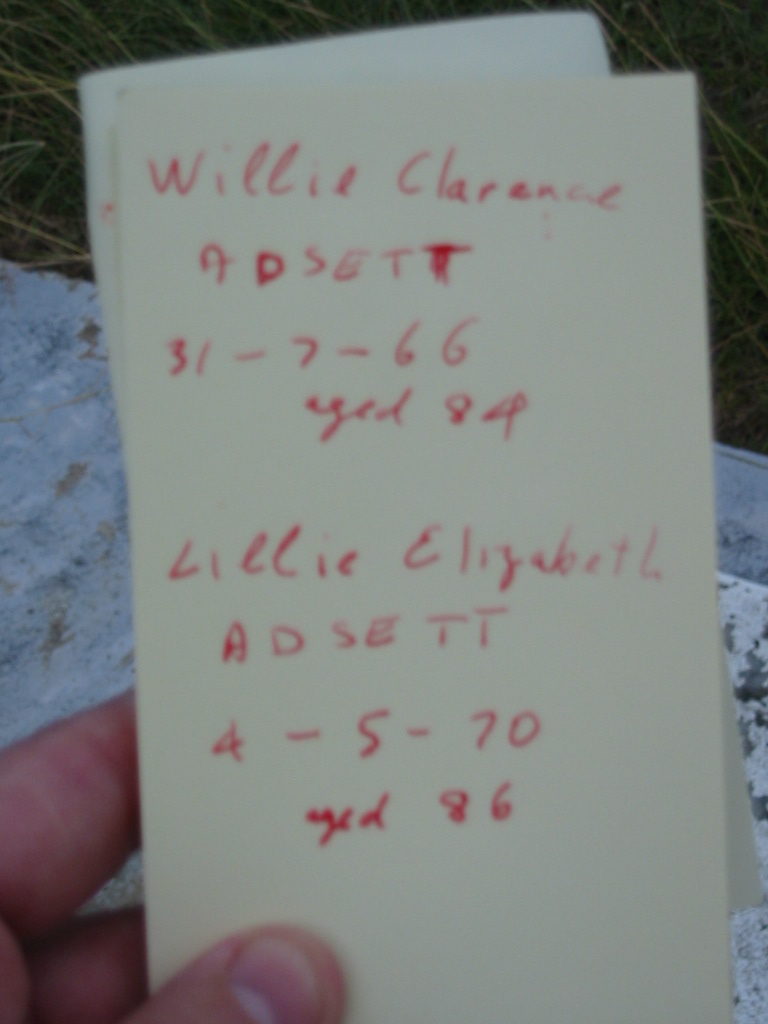 Willie Clarence
ADSETT
31-7-66
aged 84
Lillie Elizabeth
ADSETT
4-5-70
aged 86